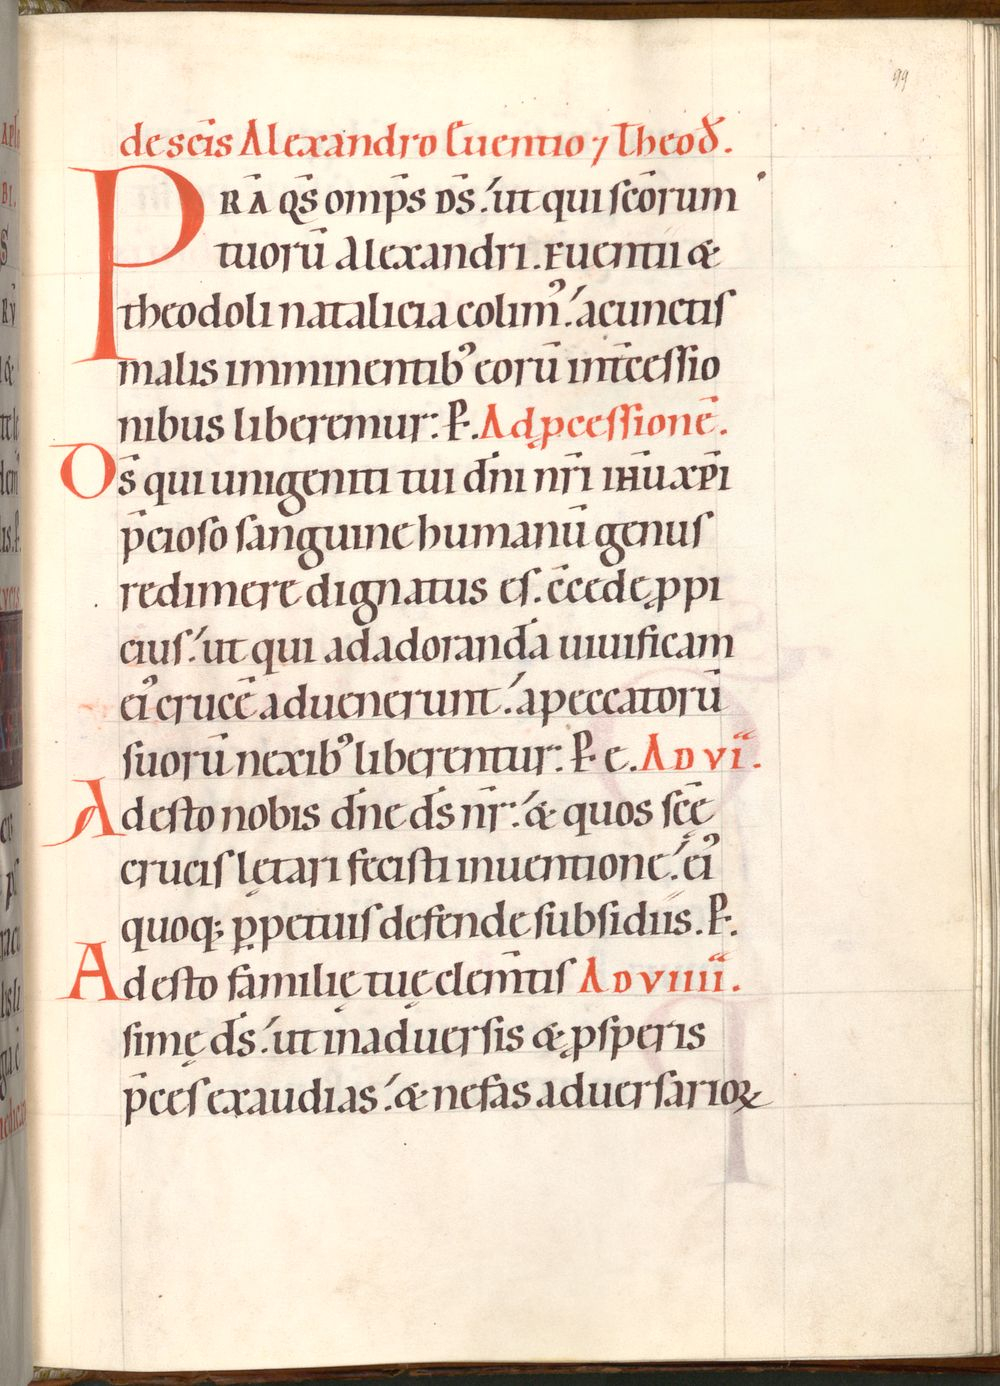 99
de sc̄is Alexandro Euentio ⁊ Theod̄.
PRĀ QS̄ omp̄s DS̄. ut qui sc̄orum
tuorū Alexandri. Euentii &
theodoli natalicia colimꝰ. a cunctis
malis imminentibꝰ eorū int̄cessio
nibus liberemur: P̄. Ad ꝓcessionē.
Ds̄ qui unigeniti tui dn̄i nr̄i ihū xp̄i
p̄cioso sanguine humanū genus
redimere dignatus es. c̄cede ꝓpi
cius. ut qui ad adorandā uiuificam
eiꝰ crucē aduenerunt. a peccatorū
suorū nexibꝰ liberentur: P̄ c. AD VI.
Adesto nobis dn̄e ds̄ nr̄. & quos sc̄ę
crucis lętari fecisti inuentione. eiꝰ
quoq; ꝑpetuis defende subsidiis. P̄.
Adesto familię tuę clem̄tis AD VIIII.
simę ds̄. ut in aduersis & ꝓsperis
p̄ces exaudias. & nefas aduersarioꝝ